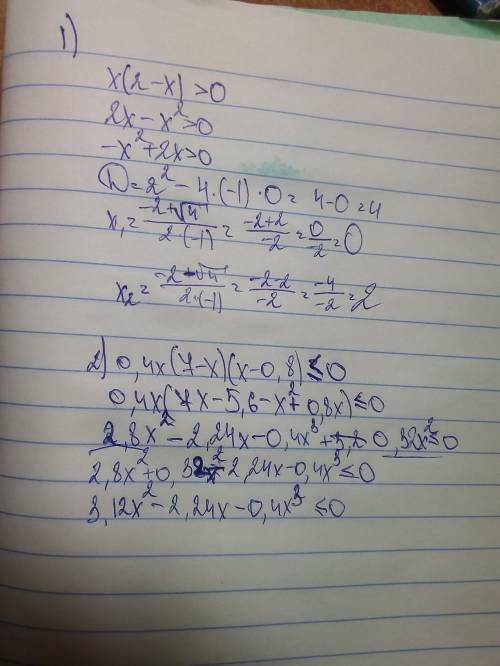 1)
x(2-x)>0
2x-x²>0
-x²+2x>0
D=2²-4·(-1)·0=4-0=4
x₁=(-2+√4)/(2·(-1))=(-2+2)/(-2)=0/(-2)=0
x₂=(-2-√4)/(2·(-1))=(-2-2)/(-2)=(-4)/(-2)=2
2) 0,4x(7-x)(x-0,8)≤0
0,4x(7x-5,6-x²+0,8x)≤0
2,8x²-2,24x-0,4x³+0,32x²≤0
2,8x²+0,32x²-2,24x-0,4x³≤0
3,12x²-2,24x-0,4x³≤0